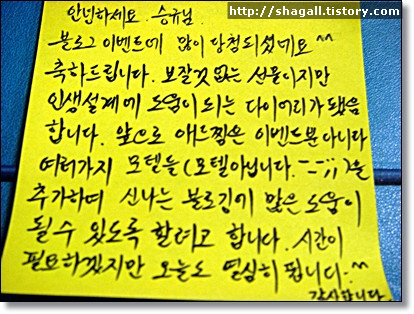 http://shagall.tistory.com
안녕하세요. 승규님.
블로그 이벤트에 많이 당첨되셨네요^^
축하드립니다. 보잘것 없는 선물이지만
인생설계에 도움이 되는 다이어리가 됐음
합니다. 앞으로 애드찜은 이벤트뿐 아니라
여러가지 모텔들(모텔아닙니다.-_-;;)을
추가하며 신나는 블로깅에 많은 도움이
될 수 있도록 할려고 합니다. 시간이
필요하겠지만 오늘도 열심히 뜁니다.^^
감사합니다.